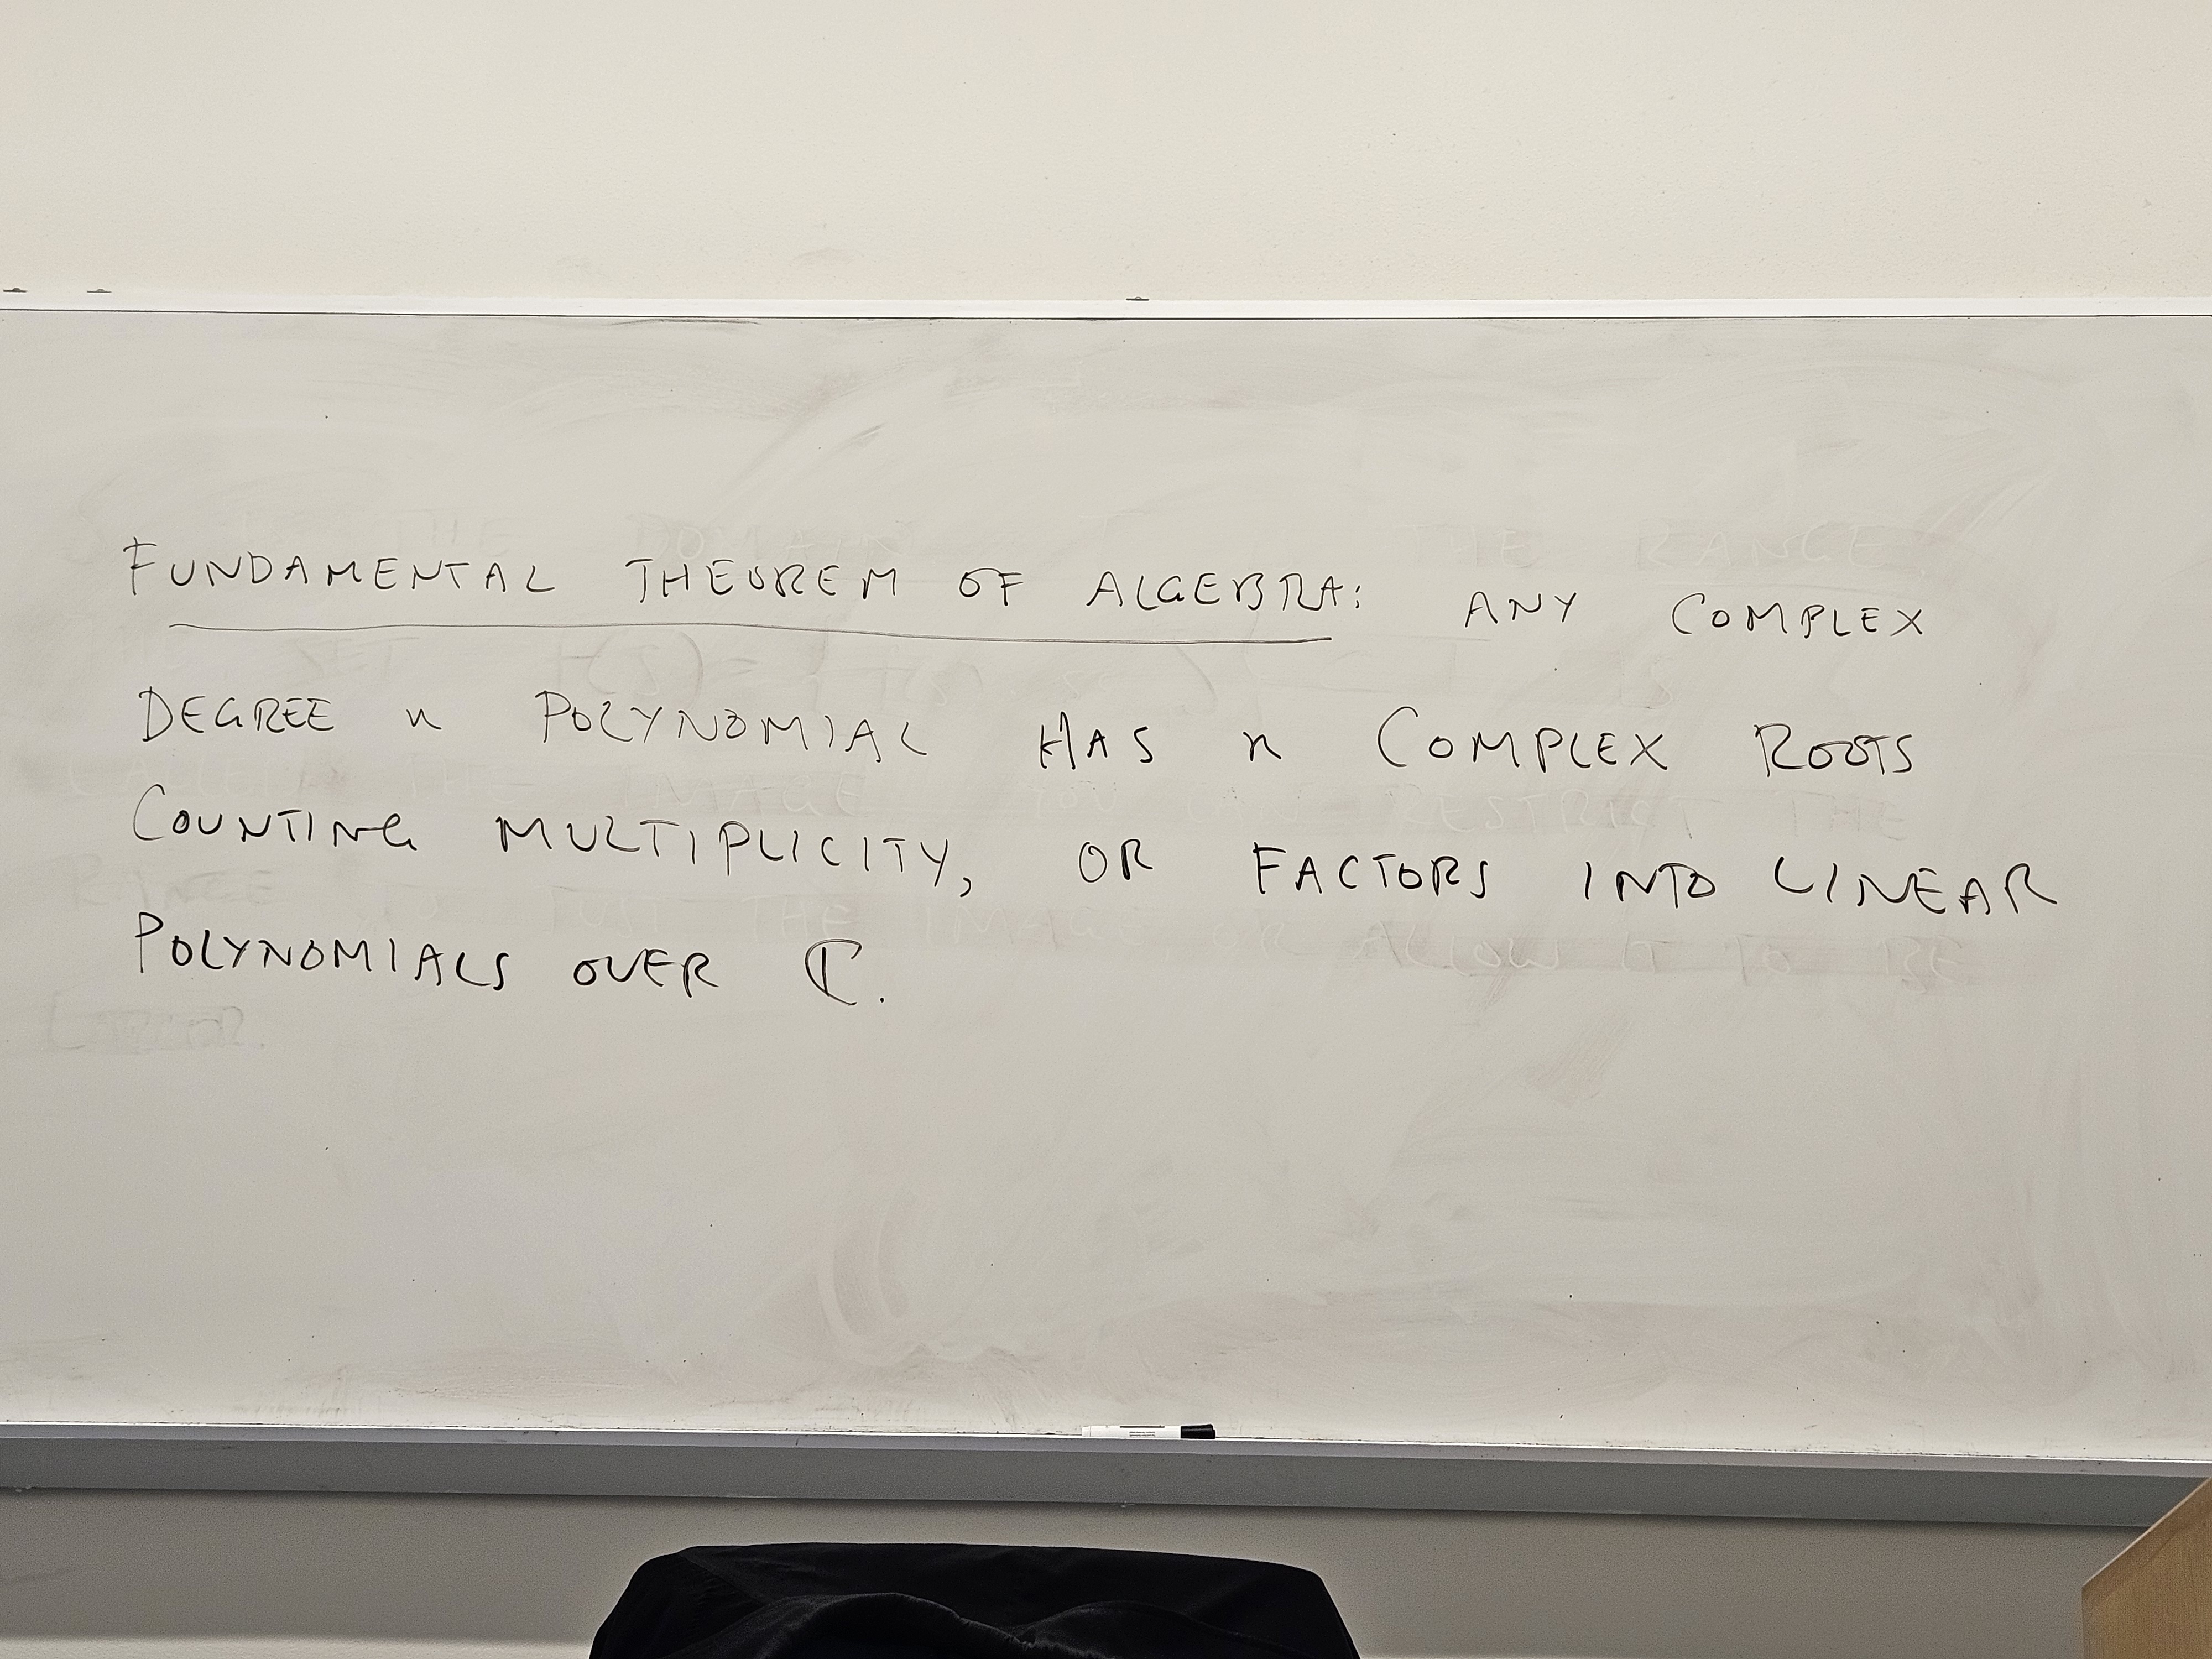 FUNDAMENTAL THEOREM OF ALGEBRA: ANY COMPLEX
DEGREE n POLYNOMIAL HAS n COMPLEX ROOTS
COUNTING MULTIPLICITY, OR FACTORS INTO LINEAR
POLYNOMIALS OVER ℂ.